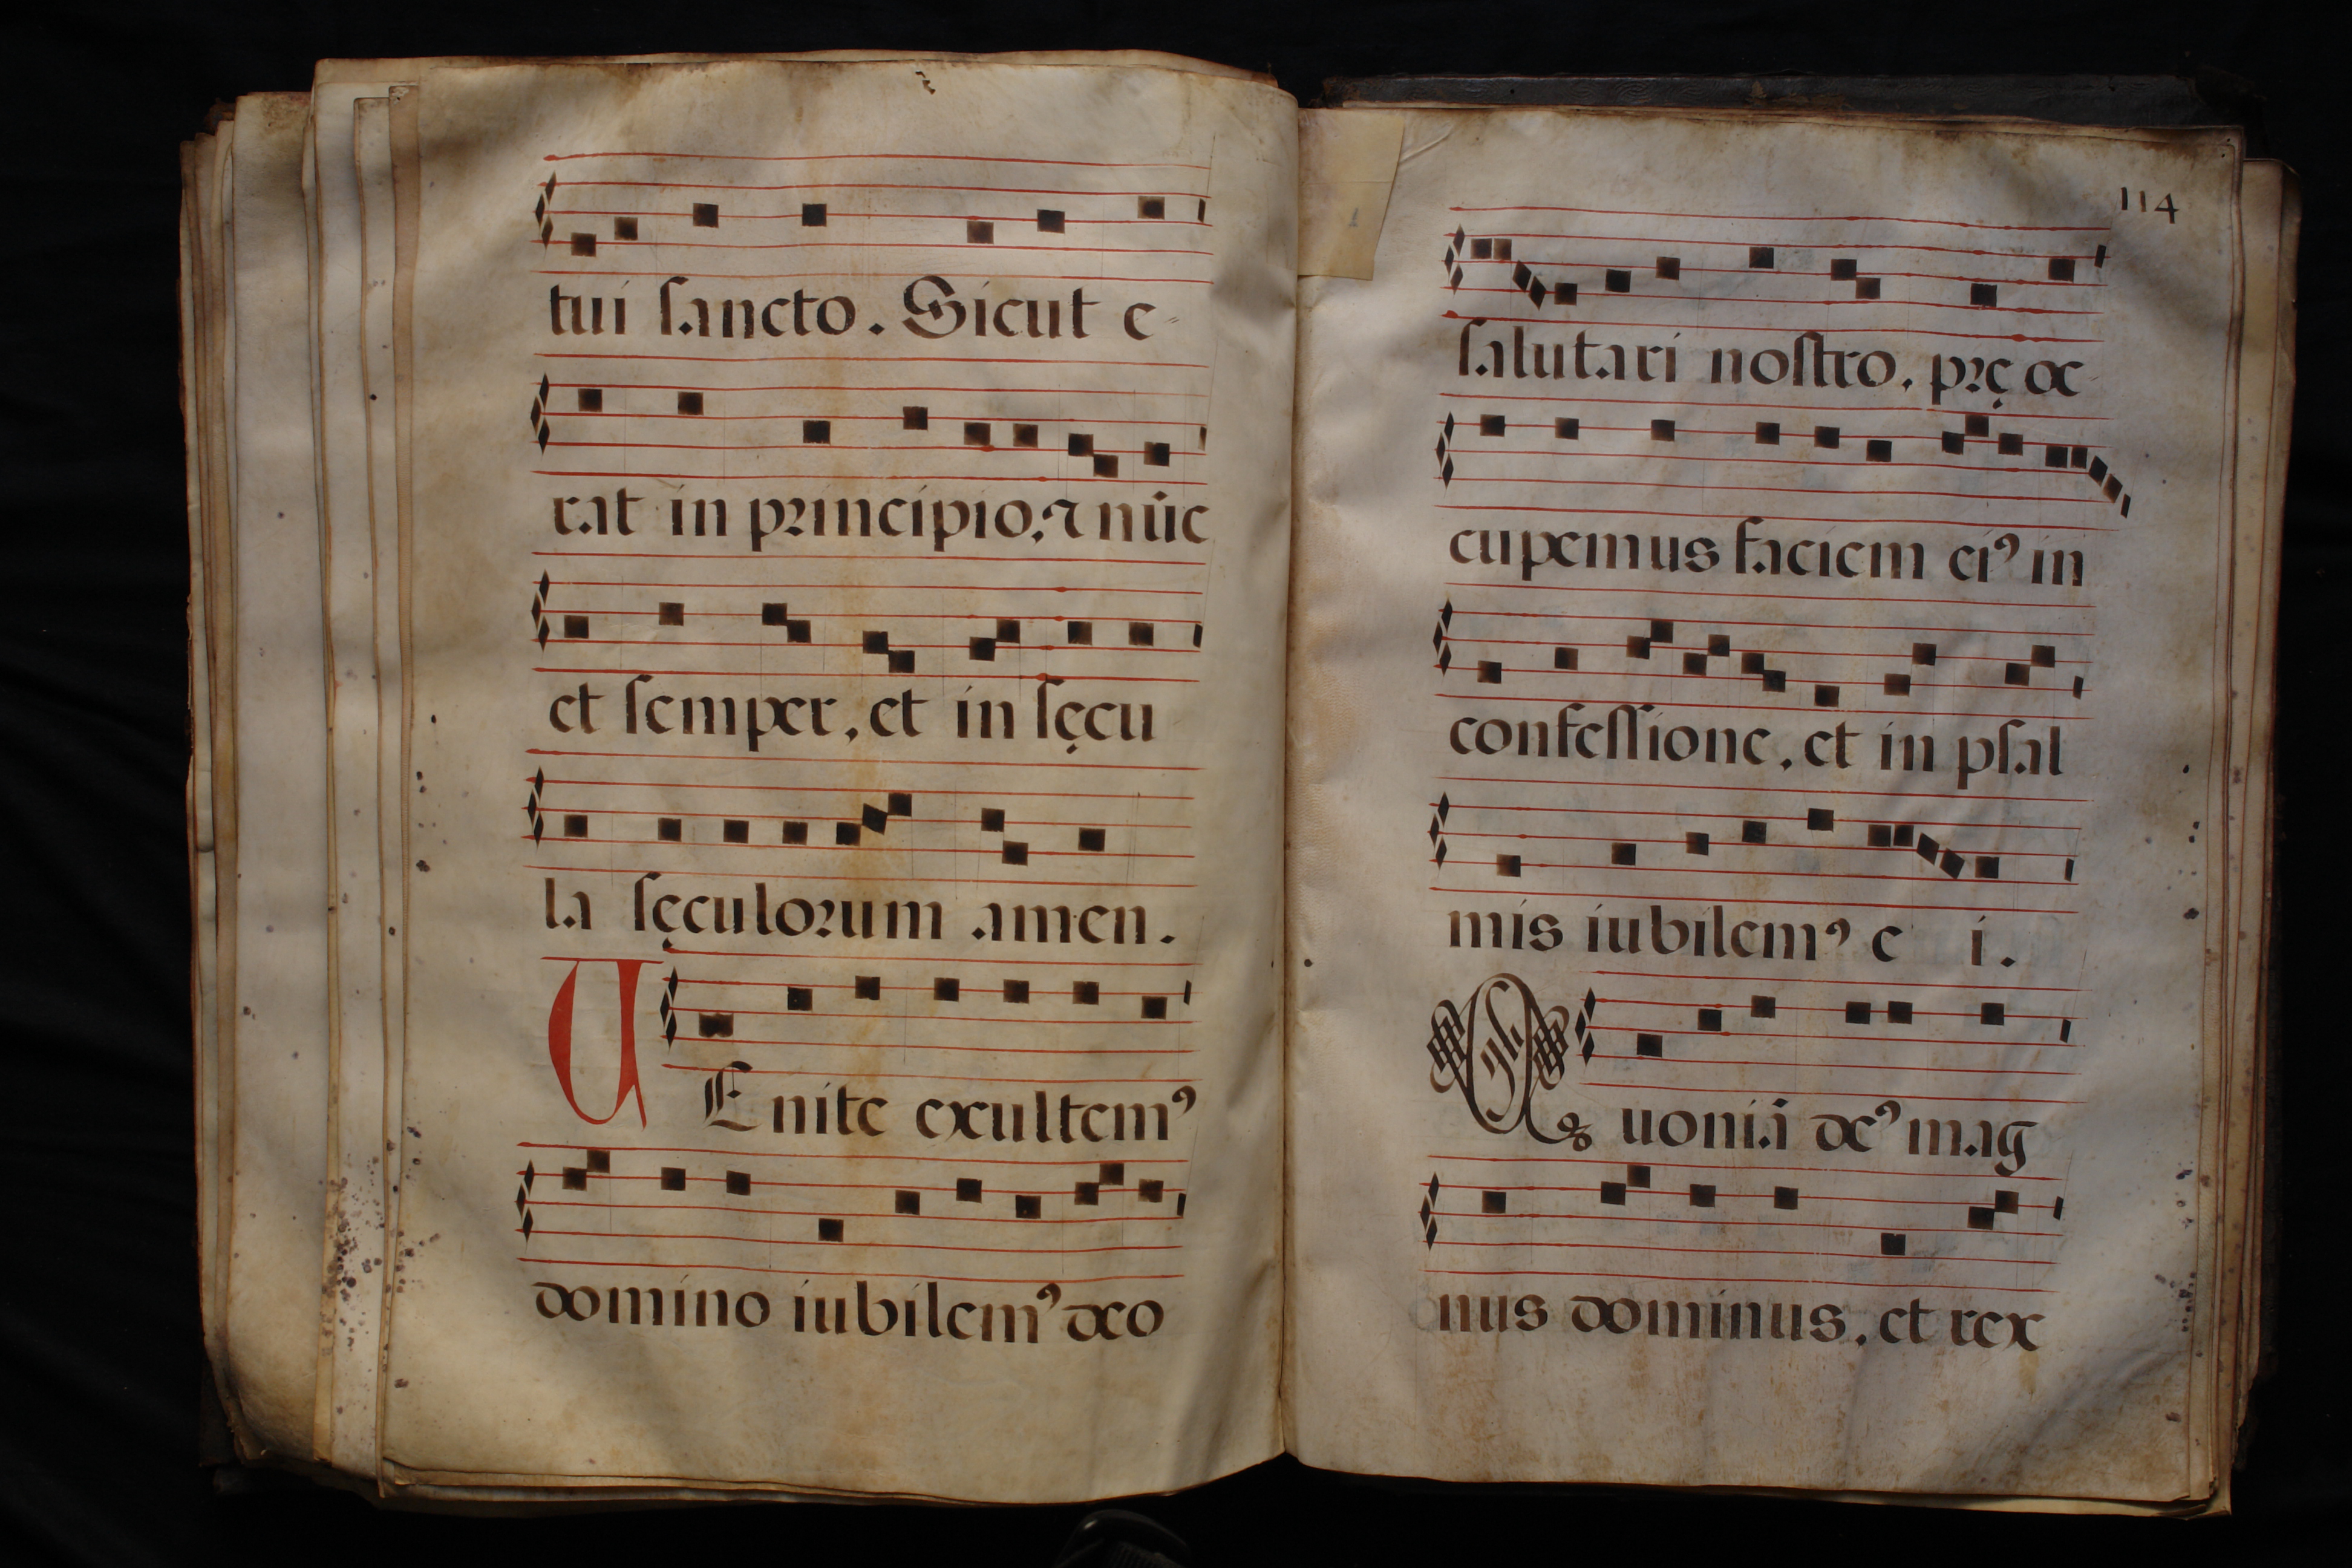 tui ſancto. Sicut e-
rat in principio, ⁊ nūc
et ſemper, et in ſęcu
la ſęculorum amen.
VEnite exultemꝰ
domino iubilemꝰ deo
114
1
ſalutari noſtro, pręoc-
cupemus faciem eiꝰ in
confeſſione, et in pſal
mis iubilemꝰ e i.
Quoniā deꝰ mag
nus dominus, et rex